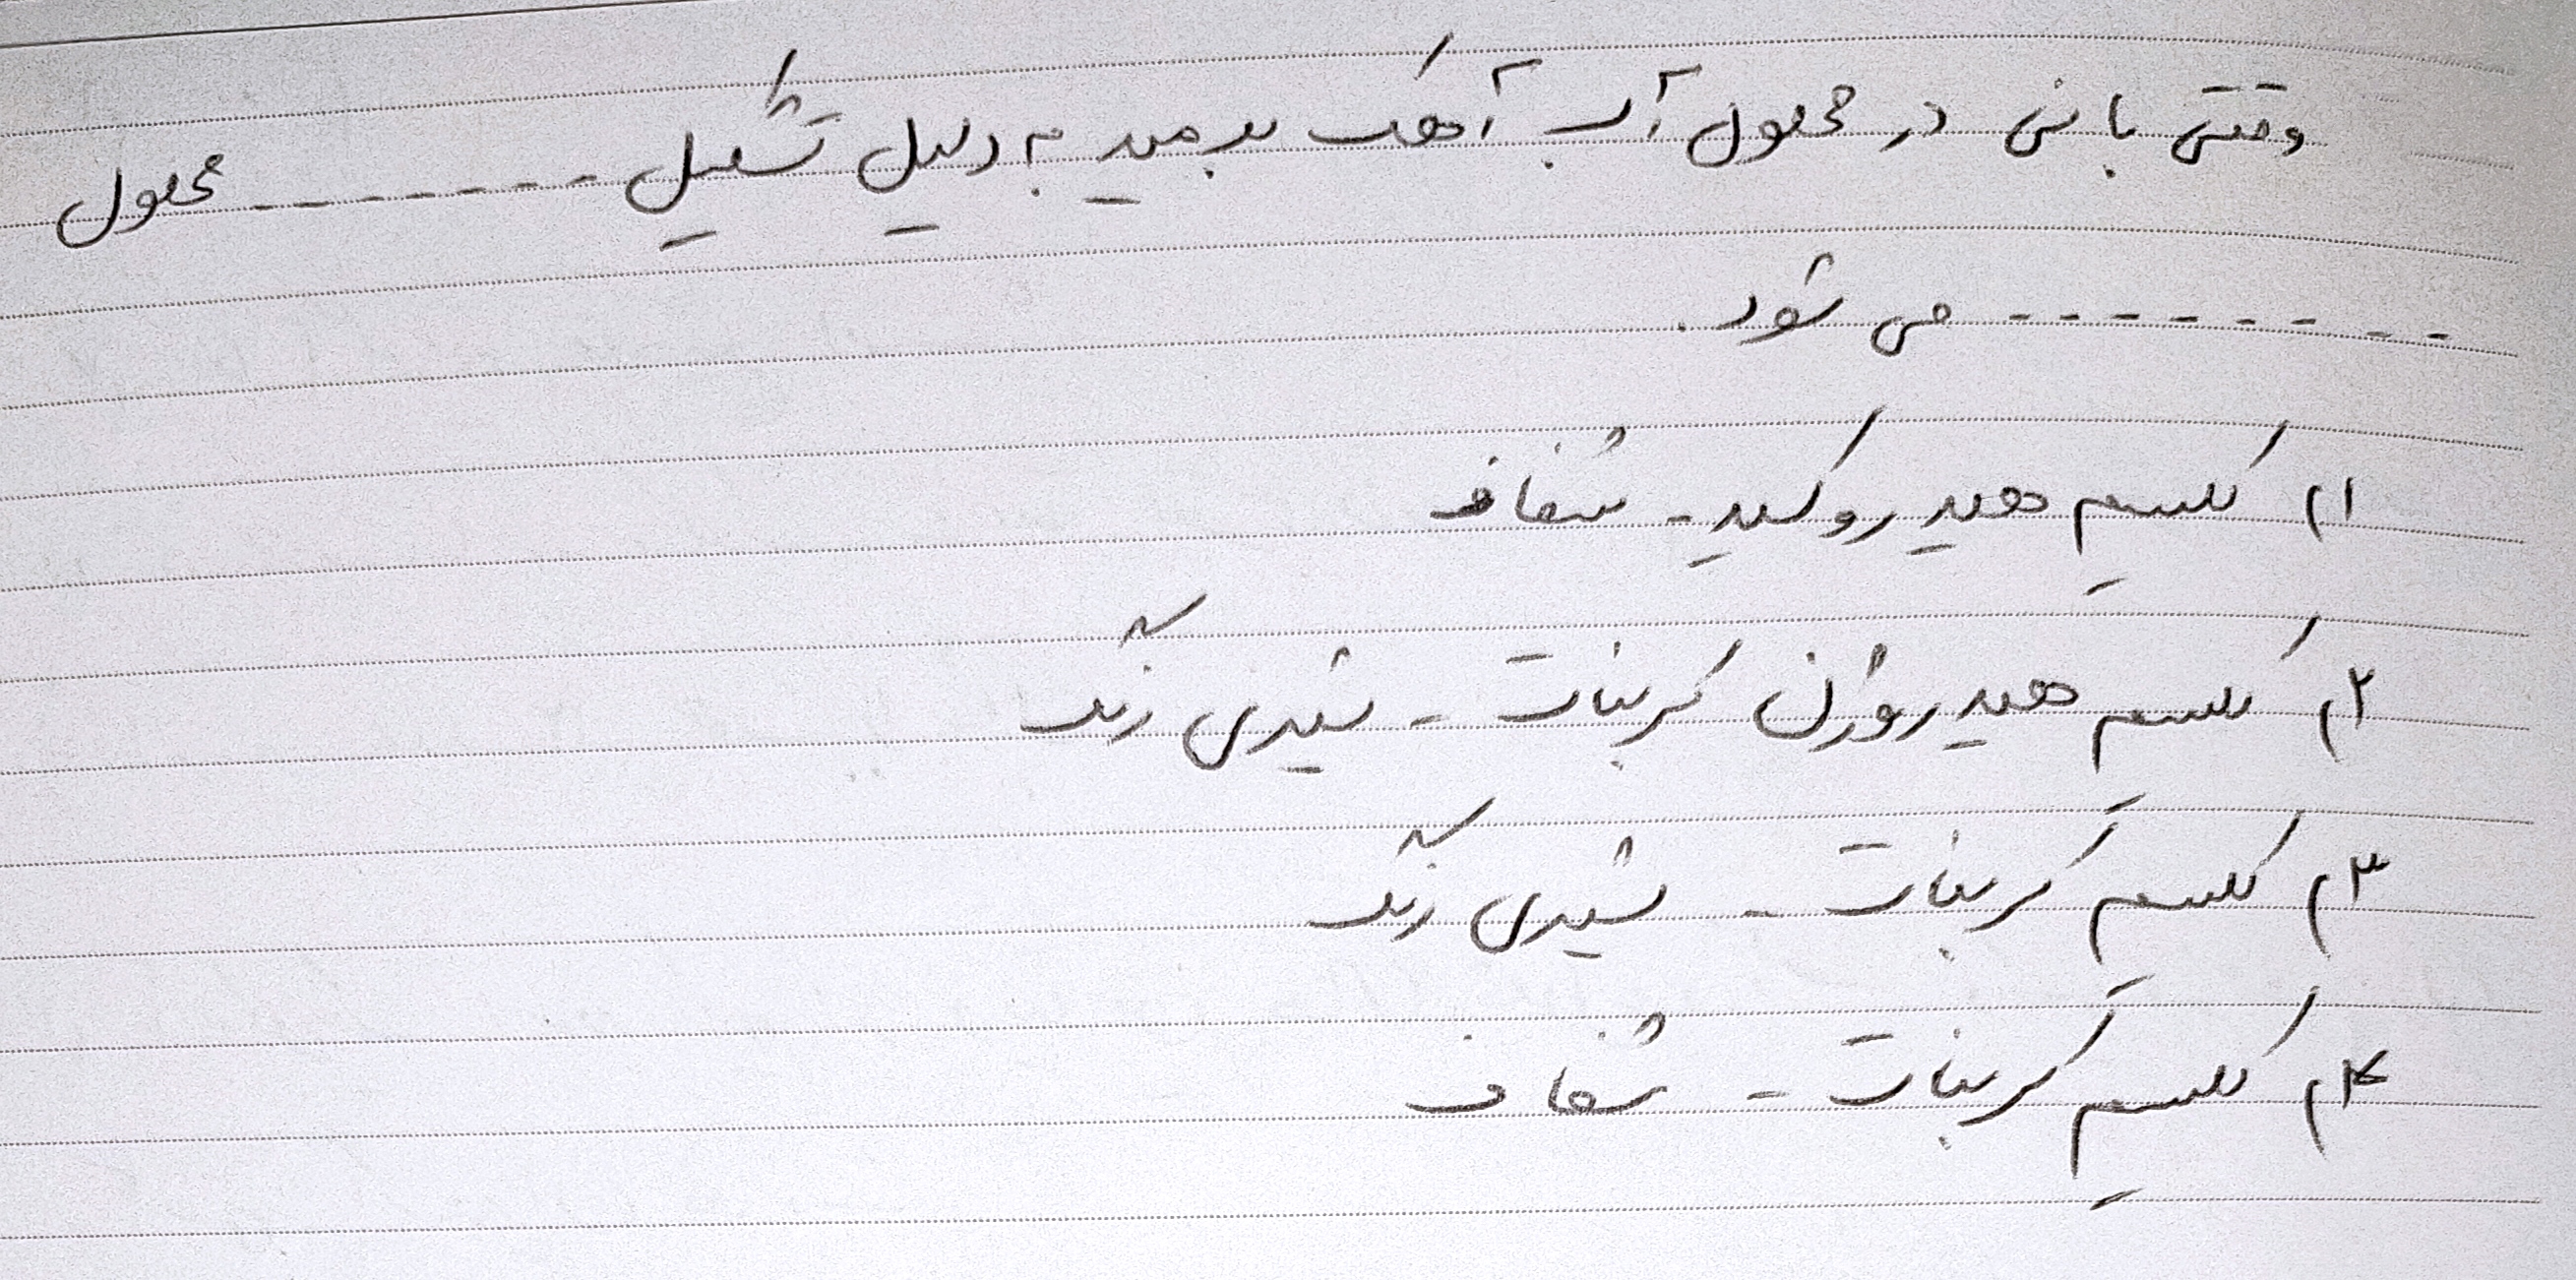 وقتی با نی در محلول آب آهک بدمید به دلیل تشکیل ------- محلول
--------- می شود.
۱) کلسیم هیدروکسید - شفاف
۲) کلسیم هیدروژن کربنات - شیری رنگ
۳) کلسیم کربنات - شیری رنگ
۴) کلسیم کربنات - شفاف